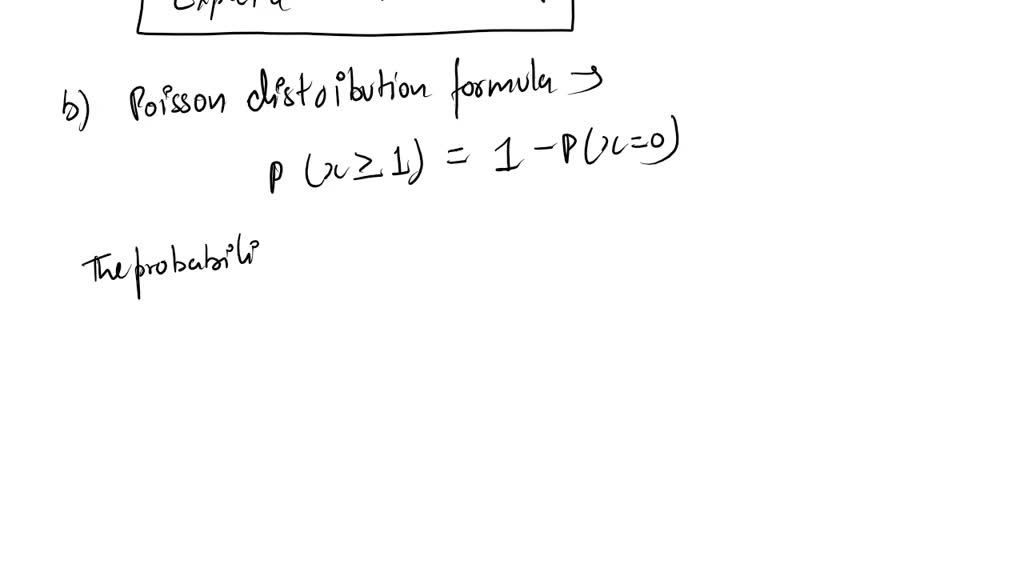 b) Poisson distribution formula →
P (x ≥ 1) = 1 - P(x=0)
The probabili